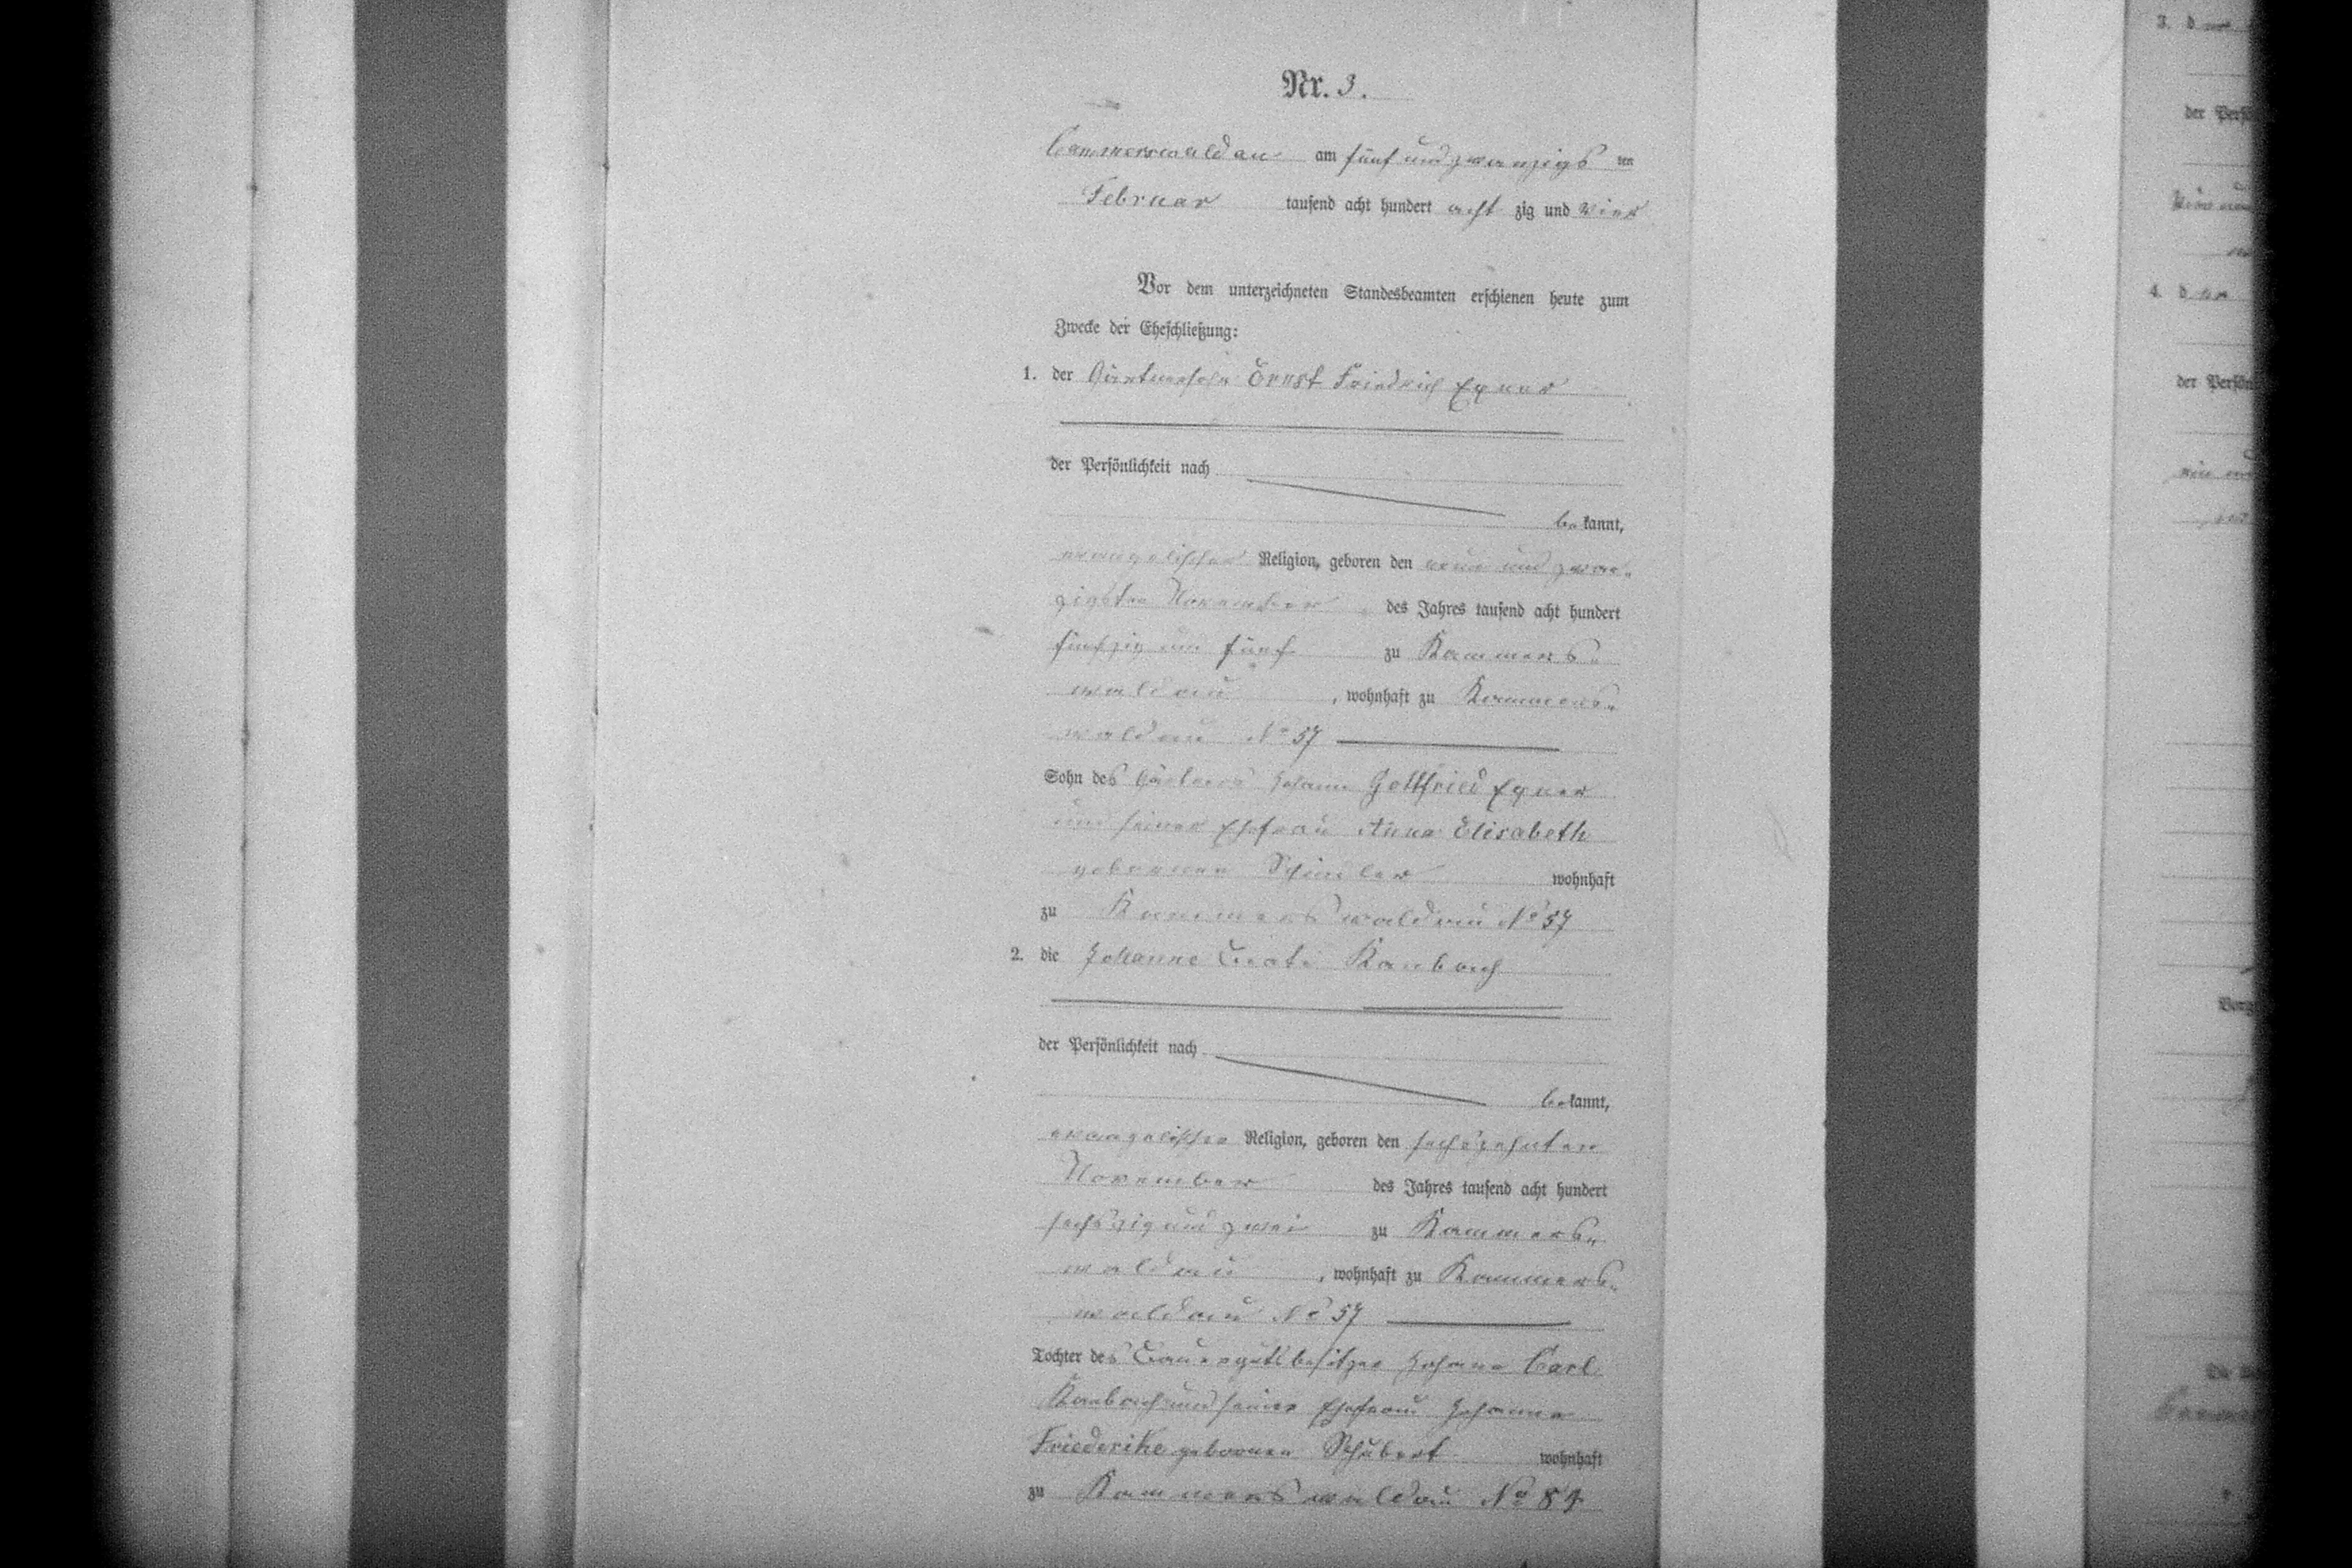 Nr. 3.
Cammerswaldau am fünf und zwanzigs ten
Februar tausend acht hundert acht zig und vier
Vor dem unterzeichneten Standesbeamten erschienen heute zum
Zwecke der Eheschließung:
1. der Gärtnersohn Ernst Friedrich Exner
der Persönlichkeit nach
be kannt,
evangelischer Religion, geboren den neun und zwan-
zigsten November des Jahres tausend acht hundert
fünfzig und fünf zu Kammers-
waldau, wohnhaft zu Kammers-
waldau No 57
Sohn des Gärtners Johann Gottfried Exner
und seiner Ehefrau Anna Elisabeth
geborenen wohnhaft
zu Kammerswaldau No 57
2. die Johanne Beate
der Persönlichkeit nach
be kannt,
evangelischer Religion, geboren den sechszehnten
November des Jahres tausend acht hundert
sechszig und zwei zu Kammers-
waldau, wohnhaft zu Kammers-
waldau No 57
Tochter des Bauergutsbesitzer Johann Carl
und seiner Ehefrau Johanne
Friederike geborenen Schubert wohnhaft
zu Kammerswaldau No
3. d
der Persö
4. d
der Persön